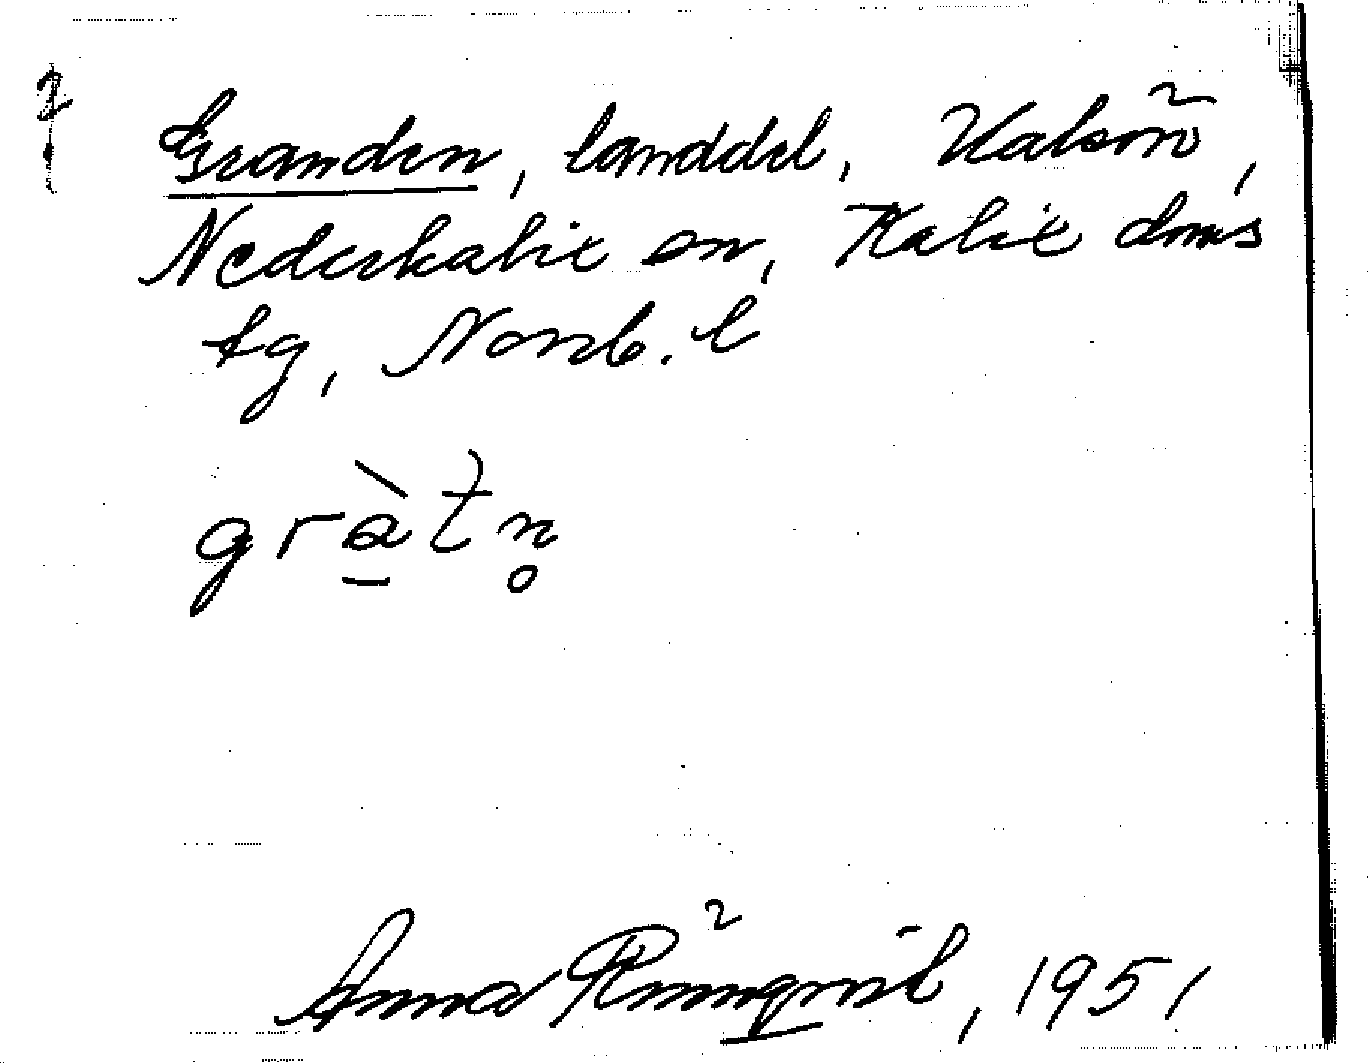 Granden, landdel, Kalsön,
Nederkalix sn, Kalix doms
tg, Norrb. l
gràtn̥
Anna Rönnqvist, 1951